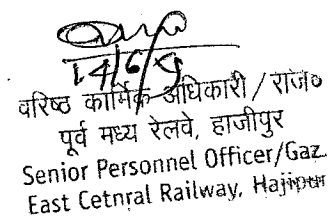 14/6/9
वरिष्ठ कार्मिक अधिकारी / राज०
पूर्व मध्य रेलवे, हाजीपुर
Senior Personnel Officer/Gaz.
East Cetnral Railway, Hajipur